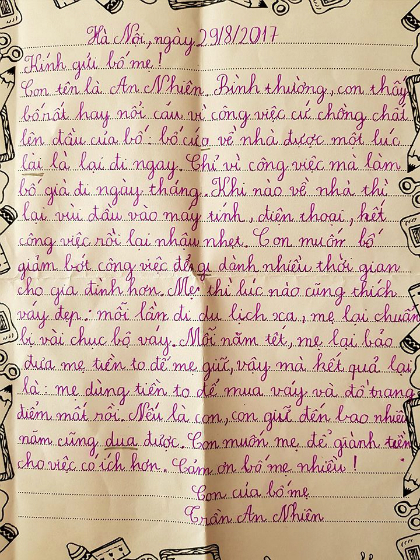 Hà Nội, ngày 29/8/2017
Kính gửi bố mẹ!
Con tên là An Nhiên. Bình thường, con thấy
bố rất hay nổi cáu vì công việc cứ chồng chất
lên đầu của bố: bố của về nhà được một lúc
lại là lại đi ngay. Chỉ vì công việc mà làm
bố già đi ngày tháng. Khi nào về nhà thì
lại vùi đầu vào máy tính, điện thoại, hết
công việc rồi lại nhậu nhẹt. Con muốn bố
giảm bớt công việc để dành nhiều thời gian
cho gia đình hơn. Mẹ thì lúc nào cũng thích
váy đẹp: mỗi lần đi du lịch xa, mẹ lại chuẩn
bị vài chục bộ váy. Mỗi năm tết, mẹ lại bảo
đưa mẹ tiền to để mẹ giữ, vậy mà kết quả lại
là: mẹ dùng tiền to để mua váy và đồ trang
điểm mất rồi. Nếu là con, con giữ đến bao nhiêu
năm cũng đưa được. Con muốn mẹ để giành tiền
cho việc có ích hơn. Cảm ơn bố mẹ nhiều!
Con của bố mẹ
Trần An Nhiên